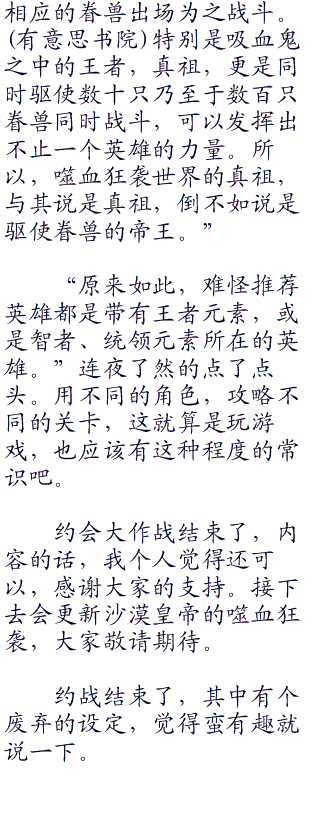 相应的眷兽出场为之战斗。
(有意思书院)特别是吸血鬼
之中的王者，真祖，更是同
时驱使数十只乃至于数百只
眷兽同时战斗，可以发挥出
不止一个英雄的力量。所
以，噬血狂袭世界的真祖，
与其说是真祖，倒不如说是
驱使眷兽的帝王。”
“原来如此，难怪推荐
英雄都是带有王者元素，或
是智者、统领元素所在的英
雄。”连夜了然的点了点
头。用不同的角色，攻略不
同的关卡，这就算是玩游
戏，也应该有这种程度的常
识吧。
约会大作战结束了，内
容的话，我个人觉得还可
以，感谢大家的支持。接下
去会更新沙漠皇帝的噬血狂
袭，大家敬请期待。
约战结束了，其中有个
废弃的设定，觉得蛮有趣就
说一下。